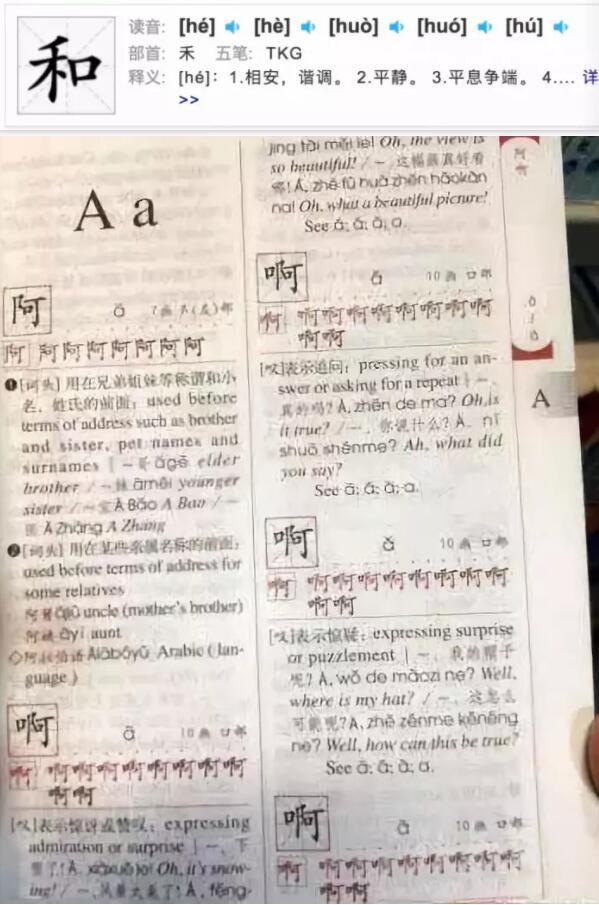 和
读音: [hé] [hè] [huò] [huó] [hú]
部首: 禾 五笔: TKG
释义: [hé]: 1.相安，谐调。 2.平静。 3.平息争端。 4.... 详
>>
A a
阿
ā 7画 阝(左)部
阿 阿阿阿阿阿阿阿
❶[词头] 用在兄弟姐妹等称谓和小
名、姓氏的前面: used before
terms of address such as brother
and sister, pet names and
surnames | ~哥 āgē elder
brother / ~妹 āmèi younger
sister / ~宝 Ā Bǎo A Bao / ~
张 Ā Zhāng A Zhang
❷[词头] 用在某些亲属名称的前面:
used before terms of address for
some relatives
阿舅 ājiù uncle (mother's brother)
阿姨 āyí aunt
◇阿拉伯语 Ālābóyǔ Arabic (lan-
guage)
啊
ā 10画 口部
啊 啊啊啊啊啊啊啊啊
啊啊
[叹]表示惊讶或赞叹: expressing
admiration or surprise | ~, 下
雪了! Ā, xiàxuě le! Oh, it's snow-
ing! / ~, 风景太美了! Ā, fēng-
jǐng tài měi le! Oh, the view is
so beautiful! / ~, 这幅画真好看
哪! Ā, zhè fú huà zhēn hǎokàn
na! Oh, what a beautiful picture!
See á; ǎ; à; a.
啊
á 10画 口部
啊 啊啊啊啊啊啊啊啊
啊啊
[叹]表示追问: pressing for an an-
swer or asking for a repeat | ~,
真的吗? Á, zhēn de ma? Oh, is
it true? / ~, 你说什么? Á, nǐ
shuō shénme? Ah, what did
you say?
See ā; ǎ; à; a.
啊
ǎ 10画 口部
啊 啊啊啊啊啊啊啊啊
啊啊
[叹]表示惊疑: expressing surprise
or puzzlement | ~, 我的帽子
呢? Ǎ, wǒ de màozi ne? Well,
where is my hat? / ~, 这怎么
可能呢? Ǎ, zhè zěnme kěnéng
ne? Well, how can this be true?
See ā; á; à; a.
啊
à 10画 口部
啊 啊啊啊啊啊啊啊啊
啊啊
阿
啊
A